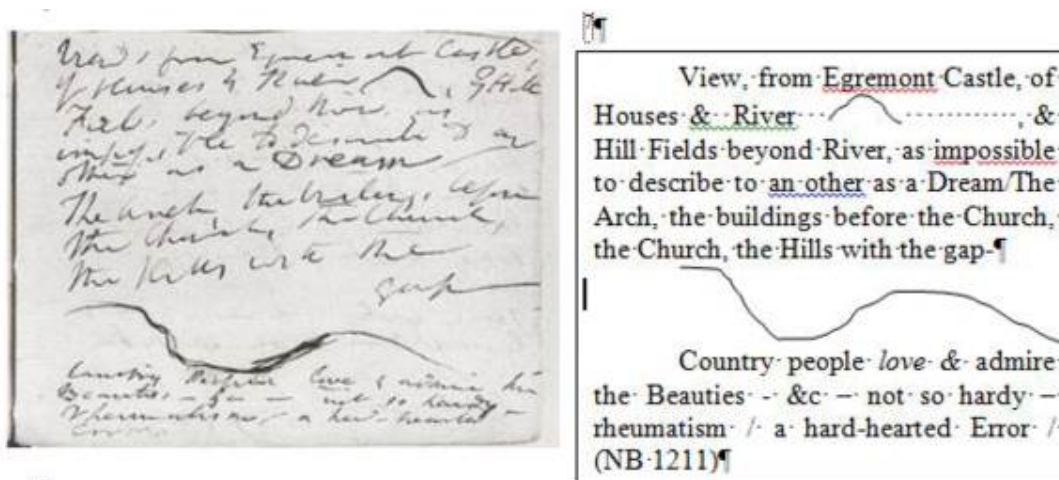 View, from Egremont Castle,
of Houses & River , & Hill
Fields beyond River, as
impossible to describe to an
other as a Dream
The Arch, the buildings before
the Church, the Church,
the Hills with the
gap—
Country People love & admire the
Beauties - &c - not so hardy -
rheumatism / a hard-hearted
View, from Egremont Castle, of
Houses & River , &
Hill Fields beyond River, as impossible
to describe to an other as a Dream/The
Arch, the buildings before the Church,
the Church, the Hills with the gap-¶
Country people love & admire
the Beauties - &c – not so hardy –
rheumatism / a hard-hearted Error /
(NB 1211)¶